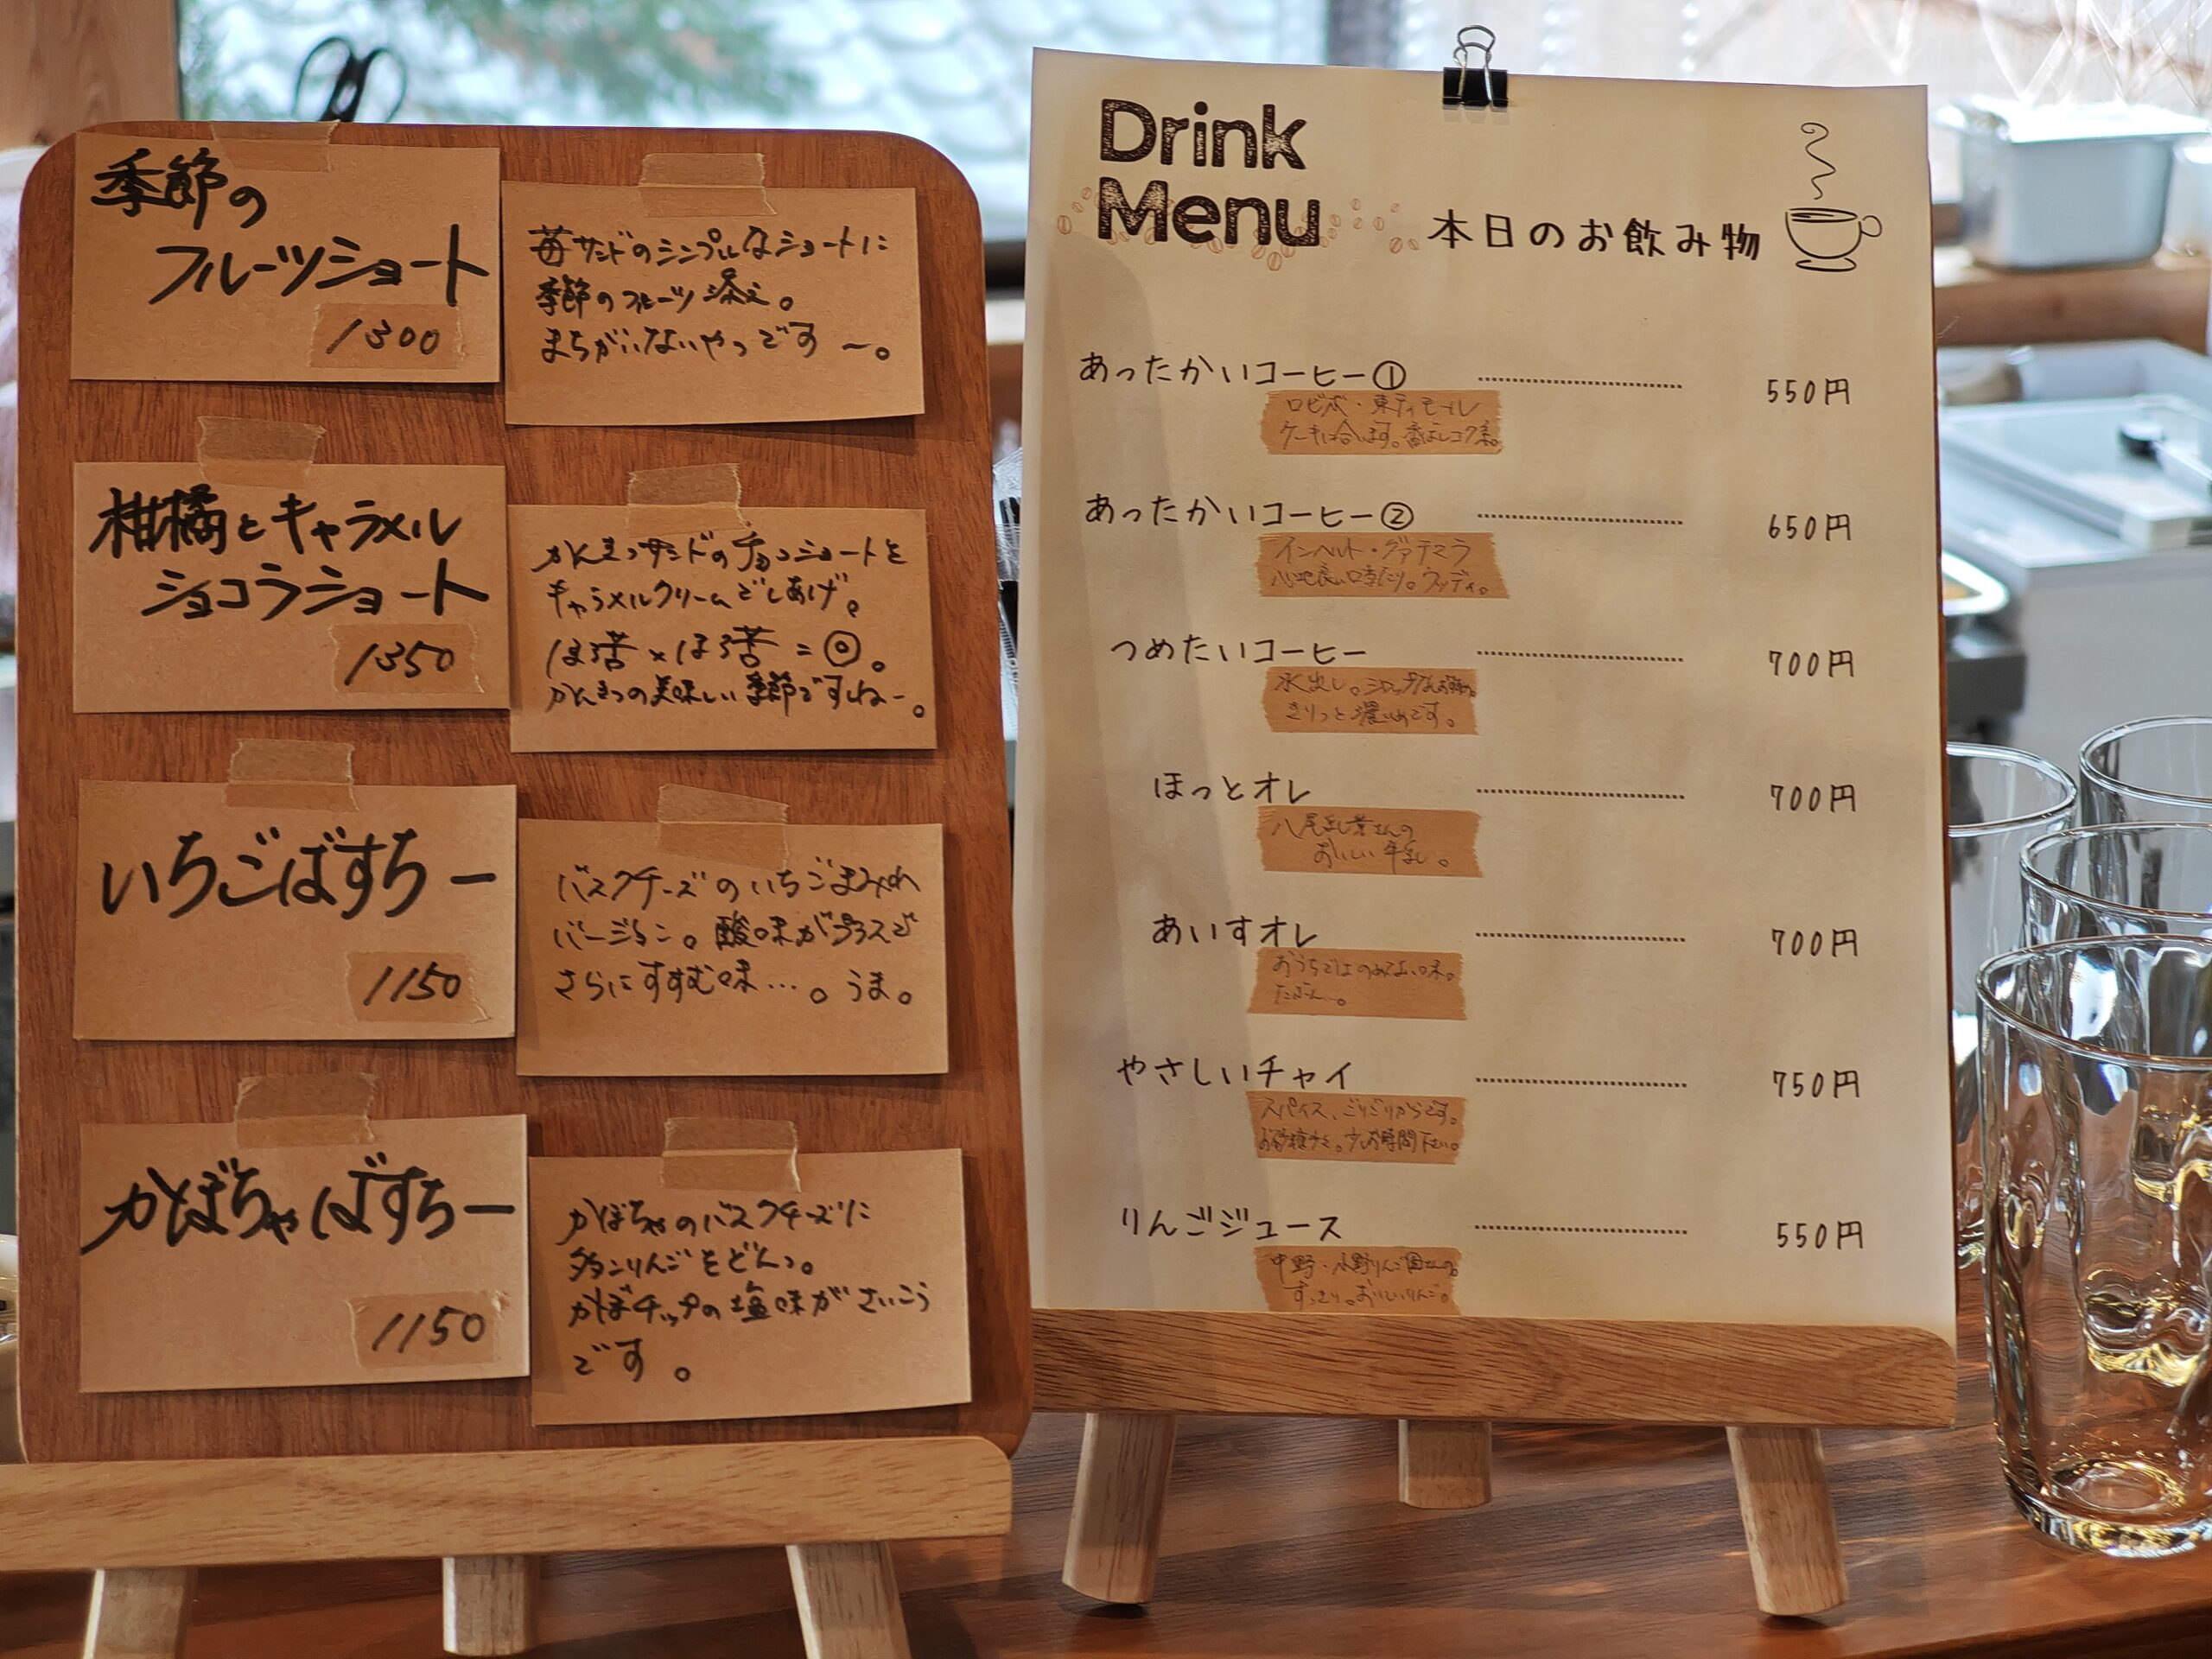 季節の
フルーツショート
1300
苺サンドのシンプルなショートに
季節のフルーツ添え。
まちがいないやつです〜。
柑橘とキャラメル
ショコラショート
1350
かんきつサンドのチョコショートを
キャラメルクリームでしあげ。
ほろ苦×ほろ苦=◎。
かんきつの美味しい季節ですしねー。
いちごばすちー
1150
バスクチーズのいちごまみれ
バージョン。酸味がプラスで
さらにすすむ味…。うま。
かぼちゃばすちー
1150
かぼちゃのバスクチーズに
タタンりんごをどんっ。
かぼチップの塩味がさいこう
です。
Drink
Menu
本日のお飲み物
あったかいコーヒー① 550円
ロビボ・東ティモール
ケーキに合います。香ばしコク系。
あったかいコーヒー② 650円
インヘルト・グァテマラ
心地良い口当たり。ウッディ。
つめたいコーヒー 700円
水出し。
きりっと濃いめです。
ほっとオレ 700円
八尾乳業さんの
おいしい牛乳。
あいすオレ 700円
おうちではのめない味。
たぶん…。
やさしいチャイ 750円
スパイス、ごりごりからです。
少しお時間下さい。
りんごジュース 550円
中野・小野りんご園さんの。
すっきり。おいしいりんご。